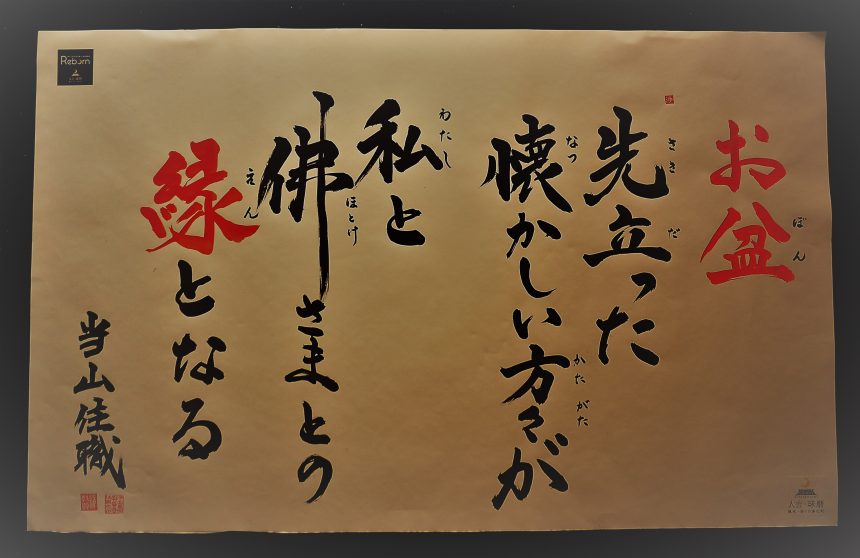 お盆
ぼん
先立った
さきだ
懐かしい方々が
なつ
かたがた
私と
わたし
佛さまとの
ほとけ
縁となる
えん
当山住職
Reborn
人吉・球磨